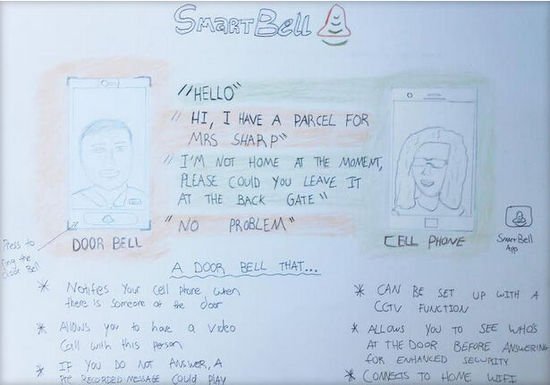 SMARTBELL
"HELLO"
"HI, I HAVE A PARCEL FOR
MRS SHARP"
"I'M NOT HOME AT THE MOMENT,
PLEASE COULD YOU LEAVE IT
AT THE BACK GATE"
"NO PROBLEM"
Press to
ring the
door Bell
DOOR BELL
CELL PHONE
SmartBell
App
A DOOR BELL THAT...
* Notifies your cell phone when
there is someone at the door
* Allows you to have a video
call with this person
* IF YOU DO NOT ANSWER, A
PRE RECORDED MESSAGE COULD PLAY
* CAN BE SET UP WITH A
CCTV FUNCTION
* ALLOWS YOU TO SEE WHO'S
AT THE DOOR BEFORE ANSWERING
FOR ENHANCED SECURITY
* CONNECTS TO HOME WIFI